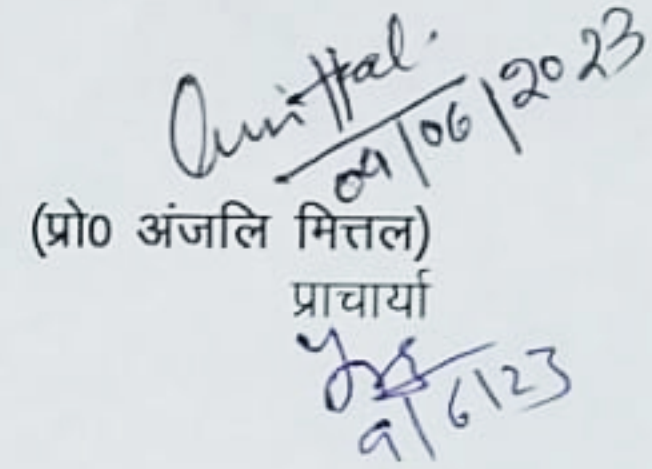 Amittal.
09/06/2023
(प्रो0 अंजलि मित्तल)
प्राचार्या
9/6/23